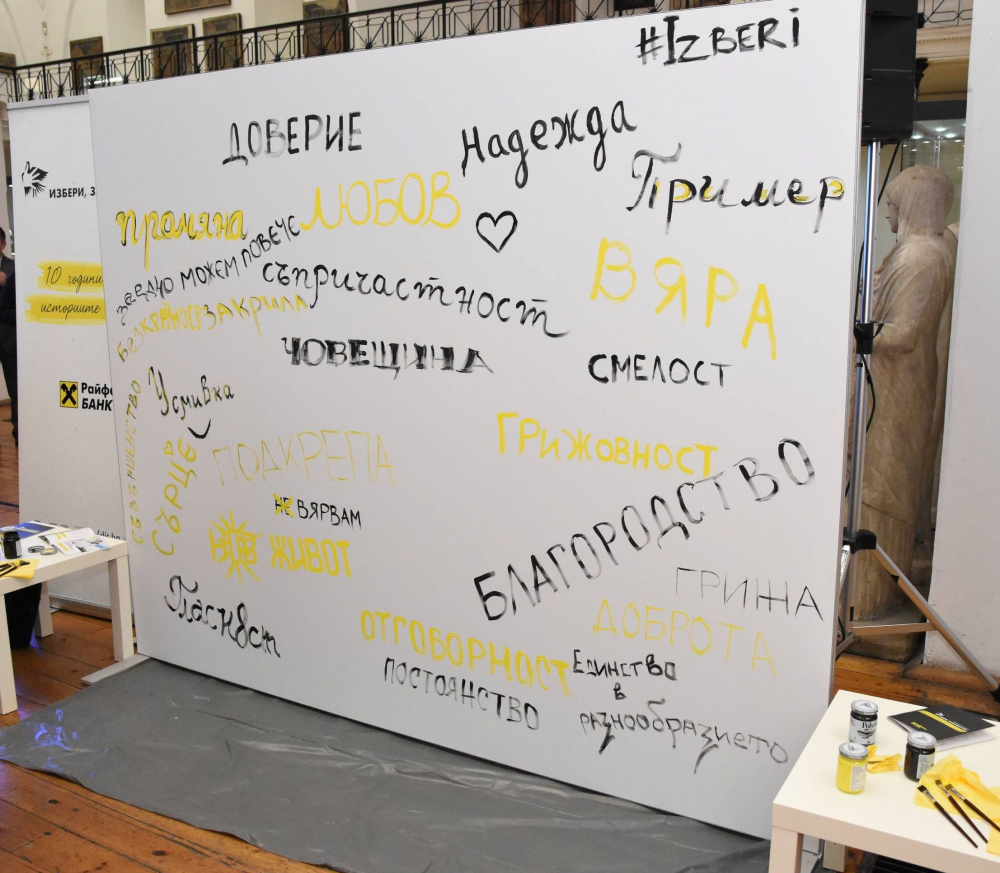 #IZBERI
ДОВЕРИЕ
Надежда
Пример
ИЗБЕРИ, З
промяна
ЛЮБОВ
заедно можем повече
съпричастност
ВЯРА
10 години
историите
БЕЗКРАЙНОСТ
ЗАКРИЛА
ЧОВЕЩИНА
СМЕЛОСТ
Райфе
БАНК
Усмивка
СЪВЪРШЕНСТВО
СЪРЦЕ
ПОДКРЕПА
ГРИЖОВНОСТ
БЛАГОРОДСТВО
НЕ ВЯРВАМ
ЖИВОТ
ГРИЖА
Гласност
ОТГОВОРНОСТ
ДОБРОТА
ПОСТОЯНСТВО
Единство
в
разнообразието